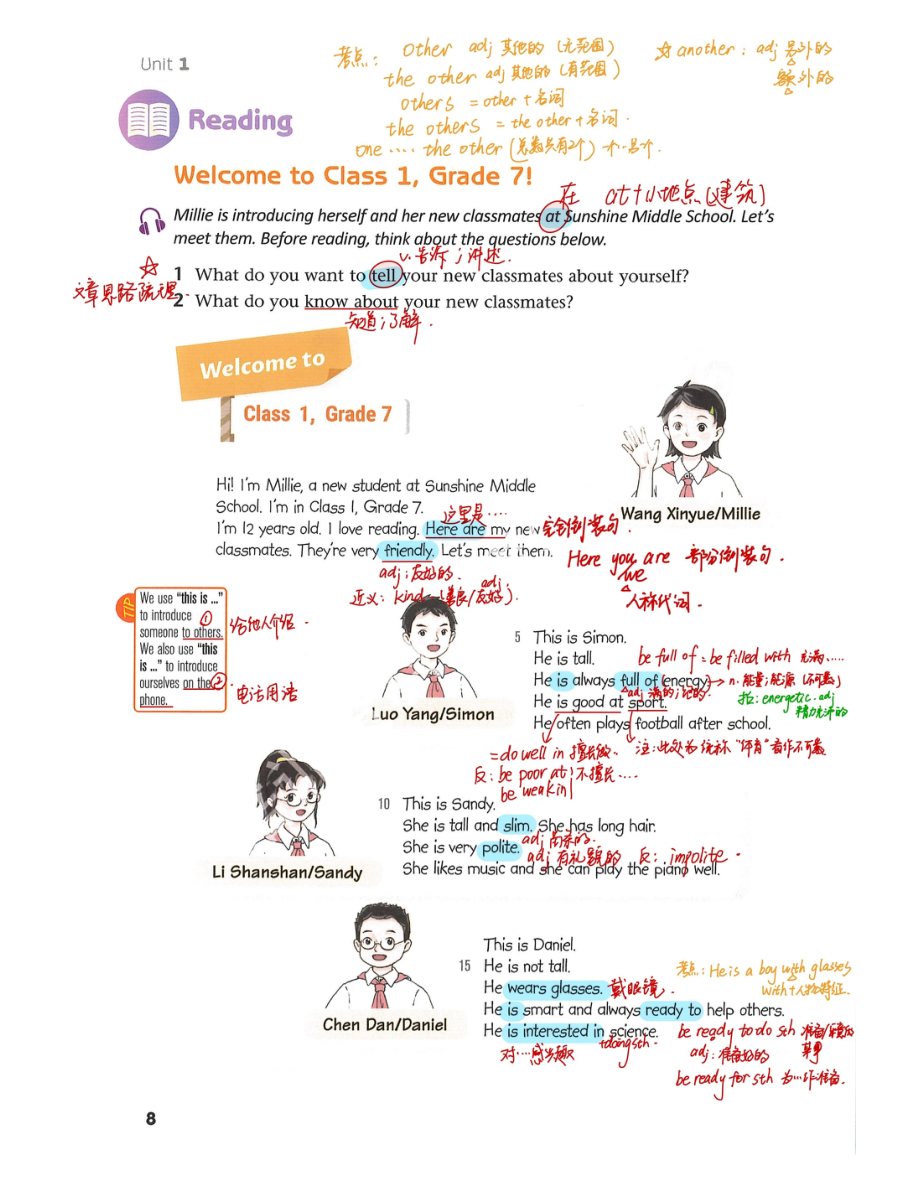 Unit 1
考点: other adj 其他的 (无范围)
the other adj 其他的 (有范围)
others = other + 名词
the others = the other + 名词.
one .... the other (总数只有2个) 一个.另一个.
☆ another: adj 另外的
额外的
Reading
Welcome to Class 1, Grade 7!
在 at+小地点(建筑)
Millie is introducing herself and her new classmates at Sunshine Middle School. Let's
meet them. Before reading, think about the questions below.
v.告诉;讲述.
1 What do you want to tell your new classmates about yourself?
☆文章思路梳理.
2 What do you know about your new classmates?
知道;了解.
Welcome to
Class 1, Grade 7
Hi! I'm Millie, a new student at Sunshine Middle
School. I'm in Class 1, Grade 7.
这里是....
I'm 12 years old. I love reading. Here are my new
完全倒装句.
classmates. They're very friendly. Let's meet them.
Wang Xinyue/Millie
Here you are 部分倒装句.
we
人称代词.
adj;友好的.
近义: kind adj. (善良/友好).
TIP
We use "this is ..."
to introduce ①
someone to others.
给他人介绍.
We also use "this
is ..." to introduce
ourselves on the ②
phone.
电话用语
Luo Yang/Simon
5 This is Simon.
He is tall.
be full of = be filled with 充满.....
He is always full of energy.
→ n.能量;能源 (不可数)
adj 满的;
拓: energetic.adj
精力充沛的
He is good at sport.
He often plays football after school.
= do well in 擅长做.
注:此处为统称 "体育" 看作不可数
反: be poor at 不擅长....
be weak in
Li Shanshan/Sandy
10 This is Sandy.
She is tall and slim. She has long hair.
adj 苗条的.
She is very polite.
adj 有礼貌的 反: impolite.
She likes music and she can play the piano well.
Chen Dan/Daniel
This is Daniel.
15 He is not tall.
He wears glasses.
戴眼镜.
考点: He is a boy with glasses
with+人物特征.
He is smart and always ready to help others.
He is interested in science.
+doing sth.
对....感兴趣
be ready to do sth 准备/乐意做
某事
adj: 准备好的
be ready for sth 为...作准备.
8